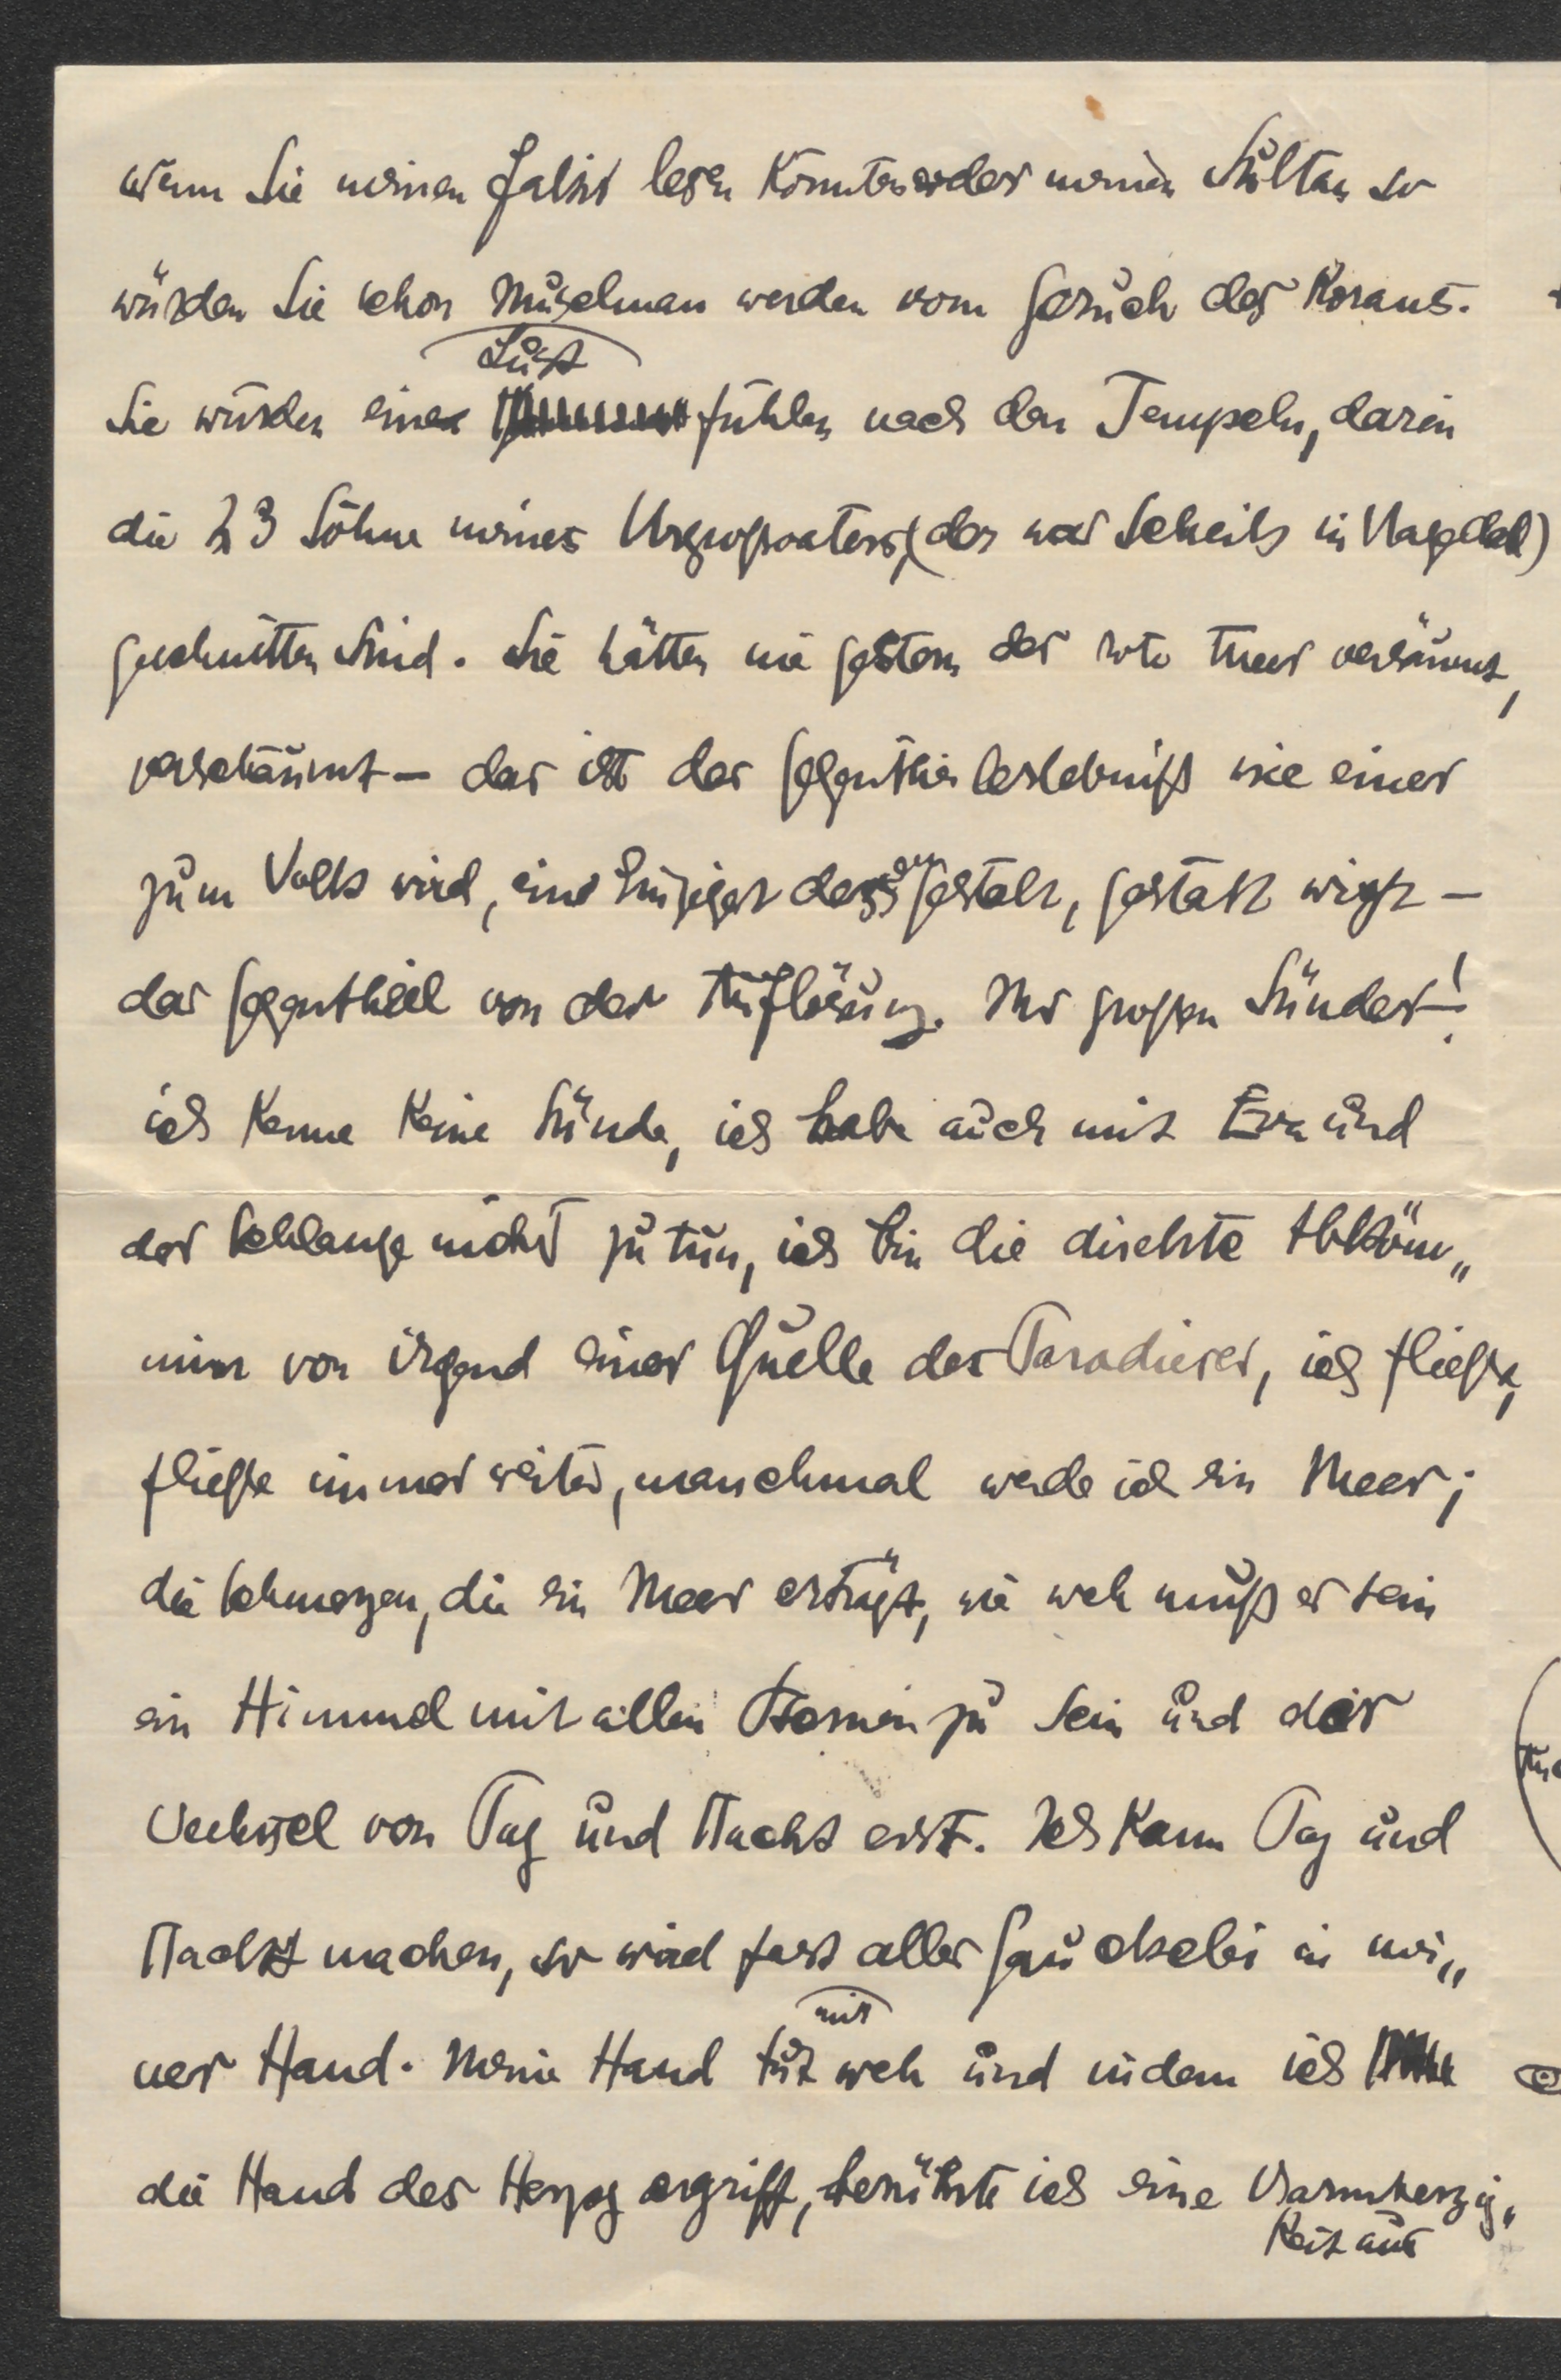 wenn Sie meinen Fakir lesen könnten oder meinen Sultan so
würden Sie schon Muselman werden vom Geruch des Korans.
Lust
Sie würden eine fühlen nach den Tempeln, darin
die 23 Söhne meines Urgroßvaters, (der war Scheik in Bagdad)
geschnitten sind. Sie hätten nie gestern das rote Meer versäumt,
verschäumt – das ist das Gegentheilerlebniß wie einer
zum Volk wird, eine Einzigart der Gestalt, Gestalt wird –
das Gegentheil von der Auflösung. Ihr großen Sünder!
ich kenne keine Sünde, ich habe auch mit Eva und
der Schlange nicht zu tun, ich bin die direkte Abköm„
min von irgend einer Quelle des Paradieses, ich fließe,
fließe immer weiter, manchmal werde ich ein Meer;
die Schmerzen, die ein Meer erträgt, wie weh muß es sein
ein Himmel mit allen Sternen zu sein und der
Wechsel von Tag und Nacht erst. Ich kann Tag und
Nacht machen, so wird fast alles Gaukelei in mei„
mir
ner Hand. Meine Hand tut weh und indem ich
die Hand des Herzog ergriff, berührte ich eine Barmherzig„
keit aus